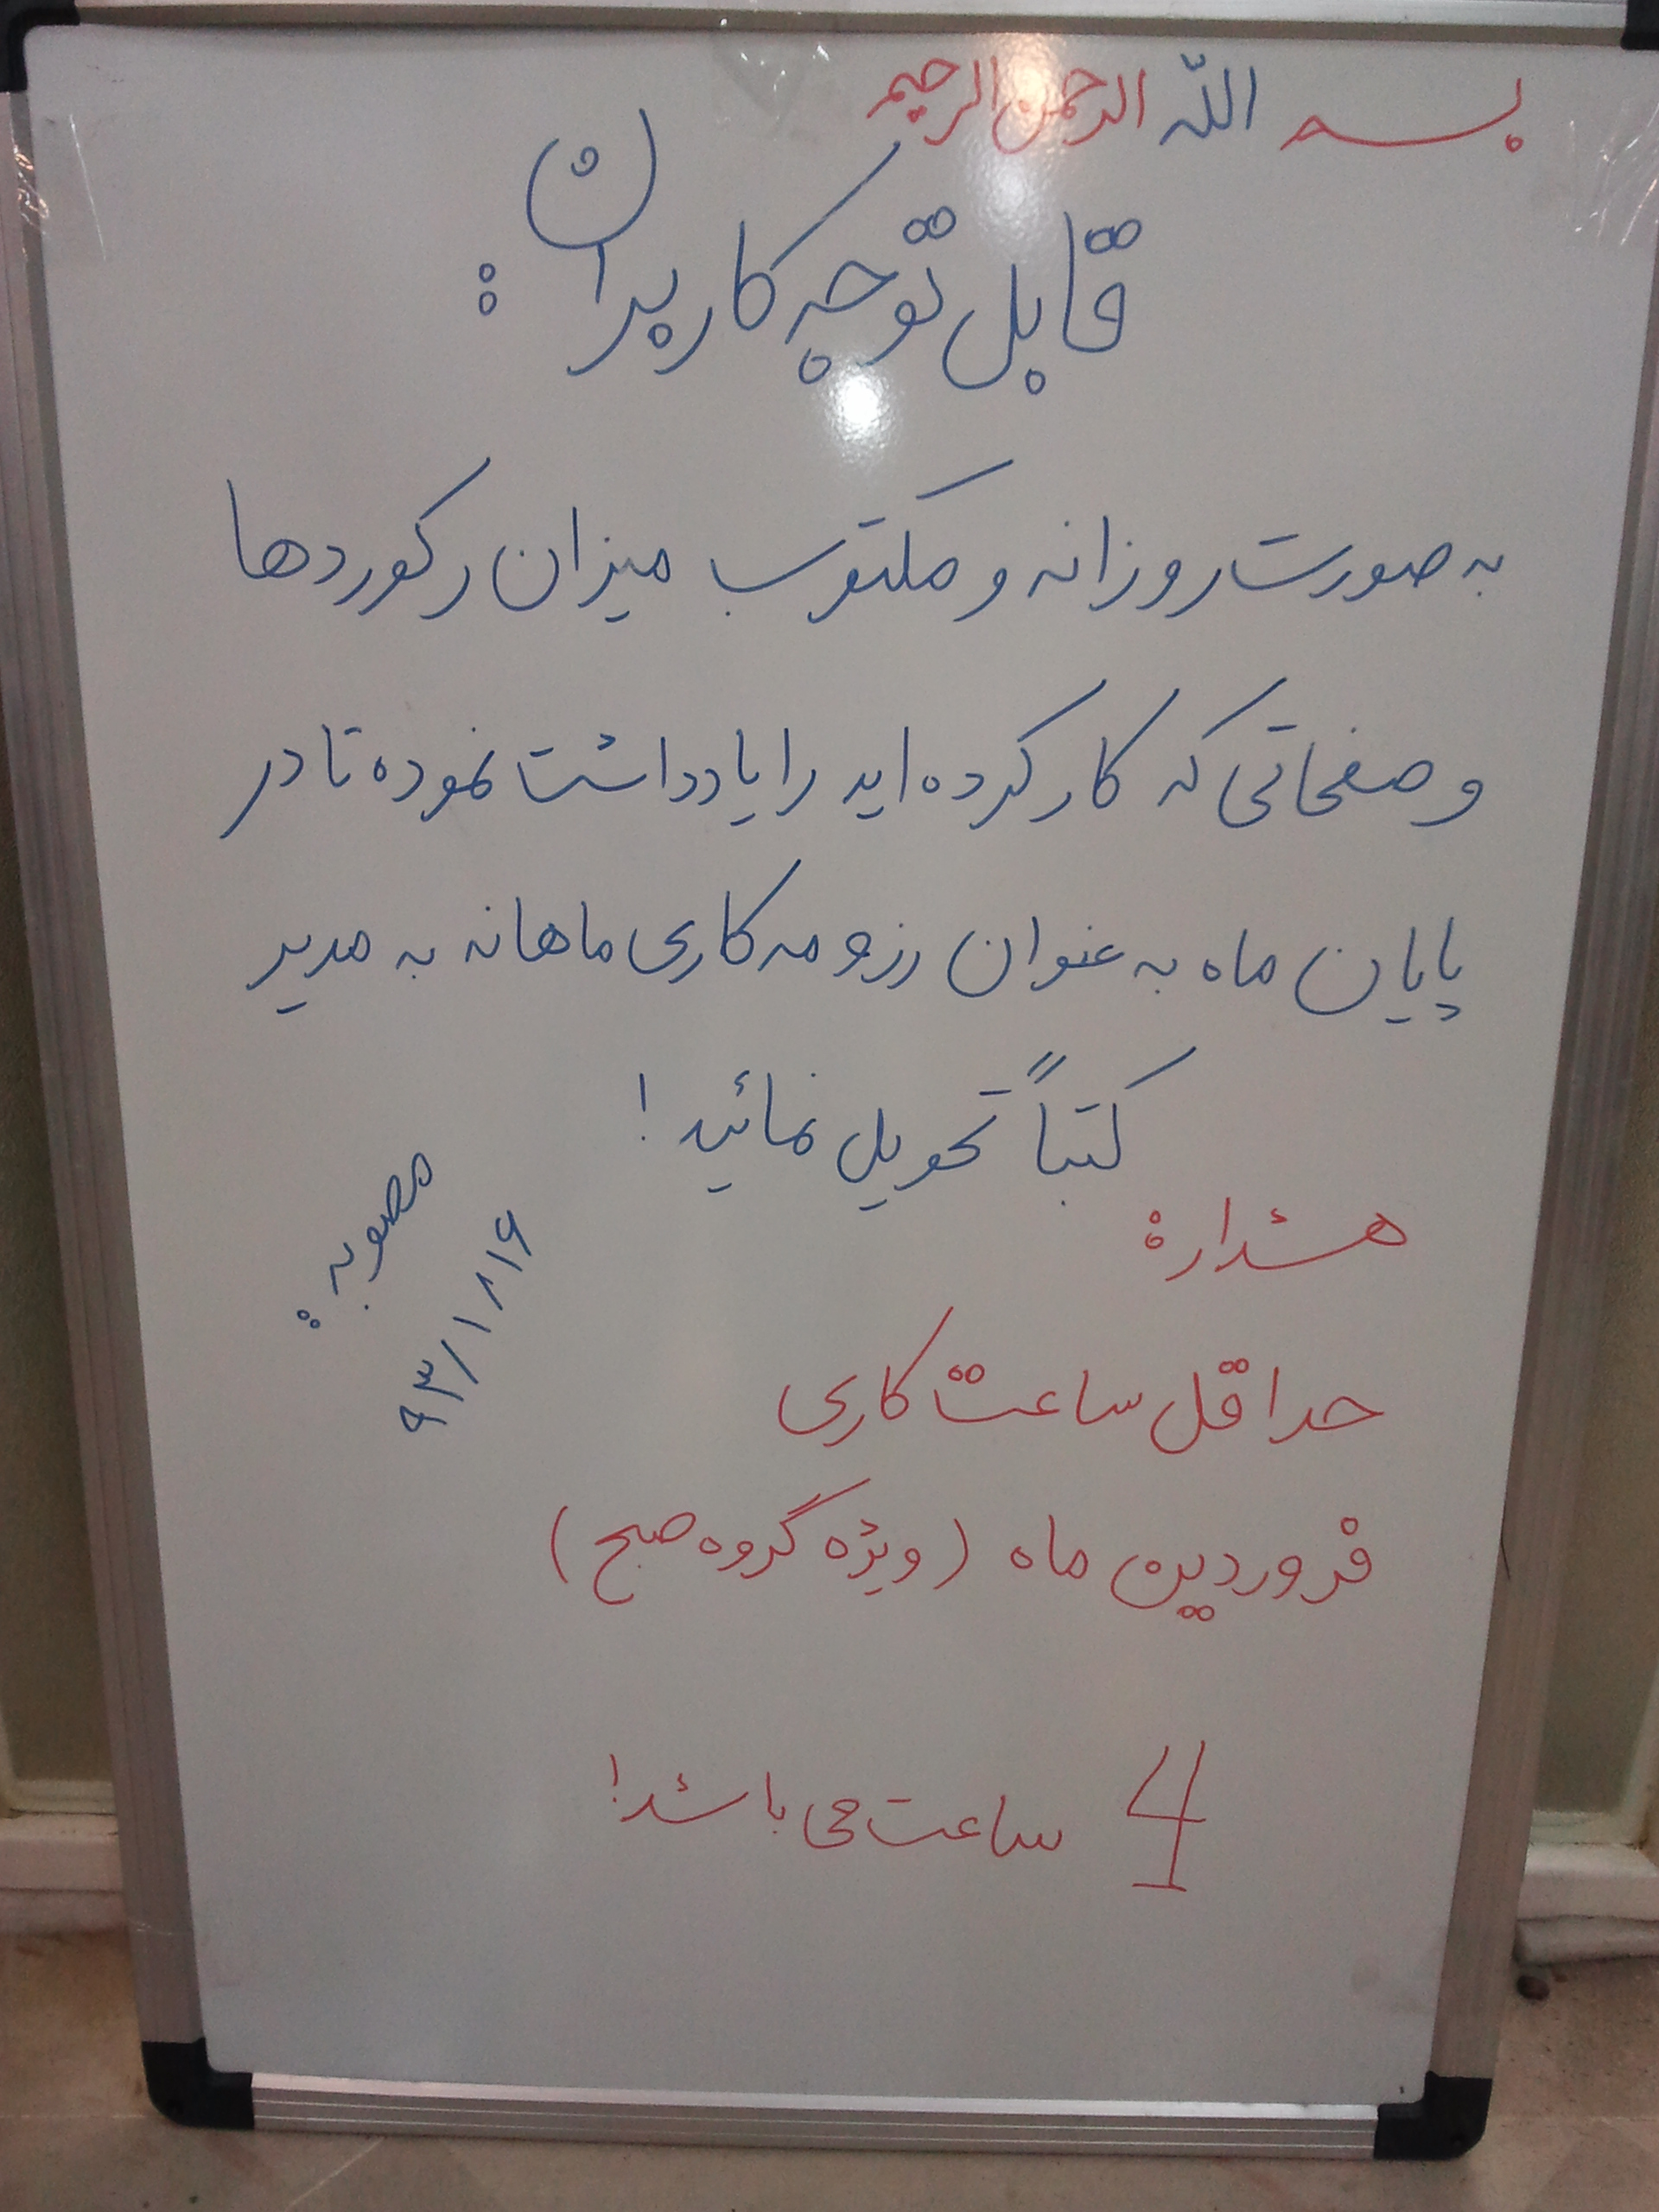 بسم الله الرحمن الرحیم
قابل توجه کاربران :
به صورت روزانه و مکتوب میزان رکوردها
و صفحاتی که کار کرده اید را یادداشت نموده تا در
پایان ماه به عنوان رزومه کاری ماهانه به مدیر
کتباً تحویل نمائید!
مصوبه :
۹۳/۱/۱۶
هشدار:
حداقل ساعت کاری
فروردین ماه (ویژه گروه صبح)
4 ساعت می باشد!